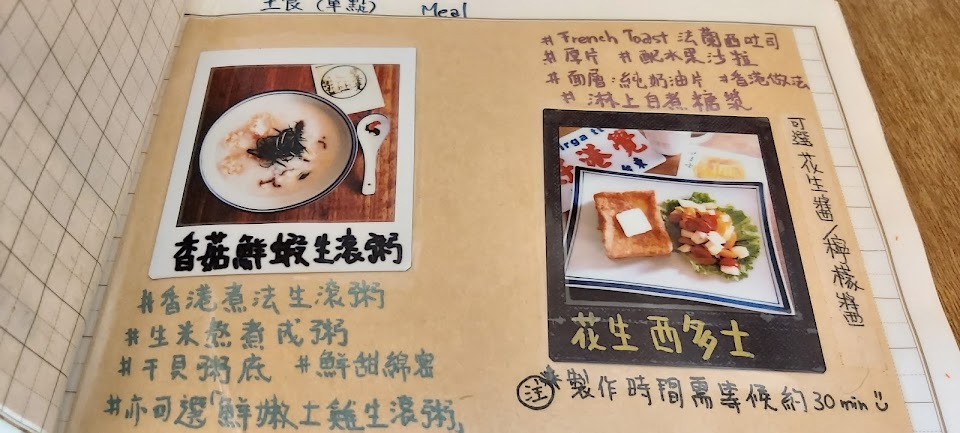 主食（單點） Meal
香菇鮮蝦生滾粥
#香港煮法生滾粥
#生米熬煮成粥
#干貝粥底 #鮮甜綿密
#亦可選「鮮嫩土雞生滾粥」
#French Toast 法蘭西吐司
#厚片 #配水果沙拉
#面層:純奶油片 #香港做法
#淋上自煮糖漿
港覺
可選 花生醬/檸檬醬
花生西多士
注 *製作時間需等候約30min